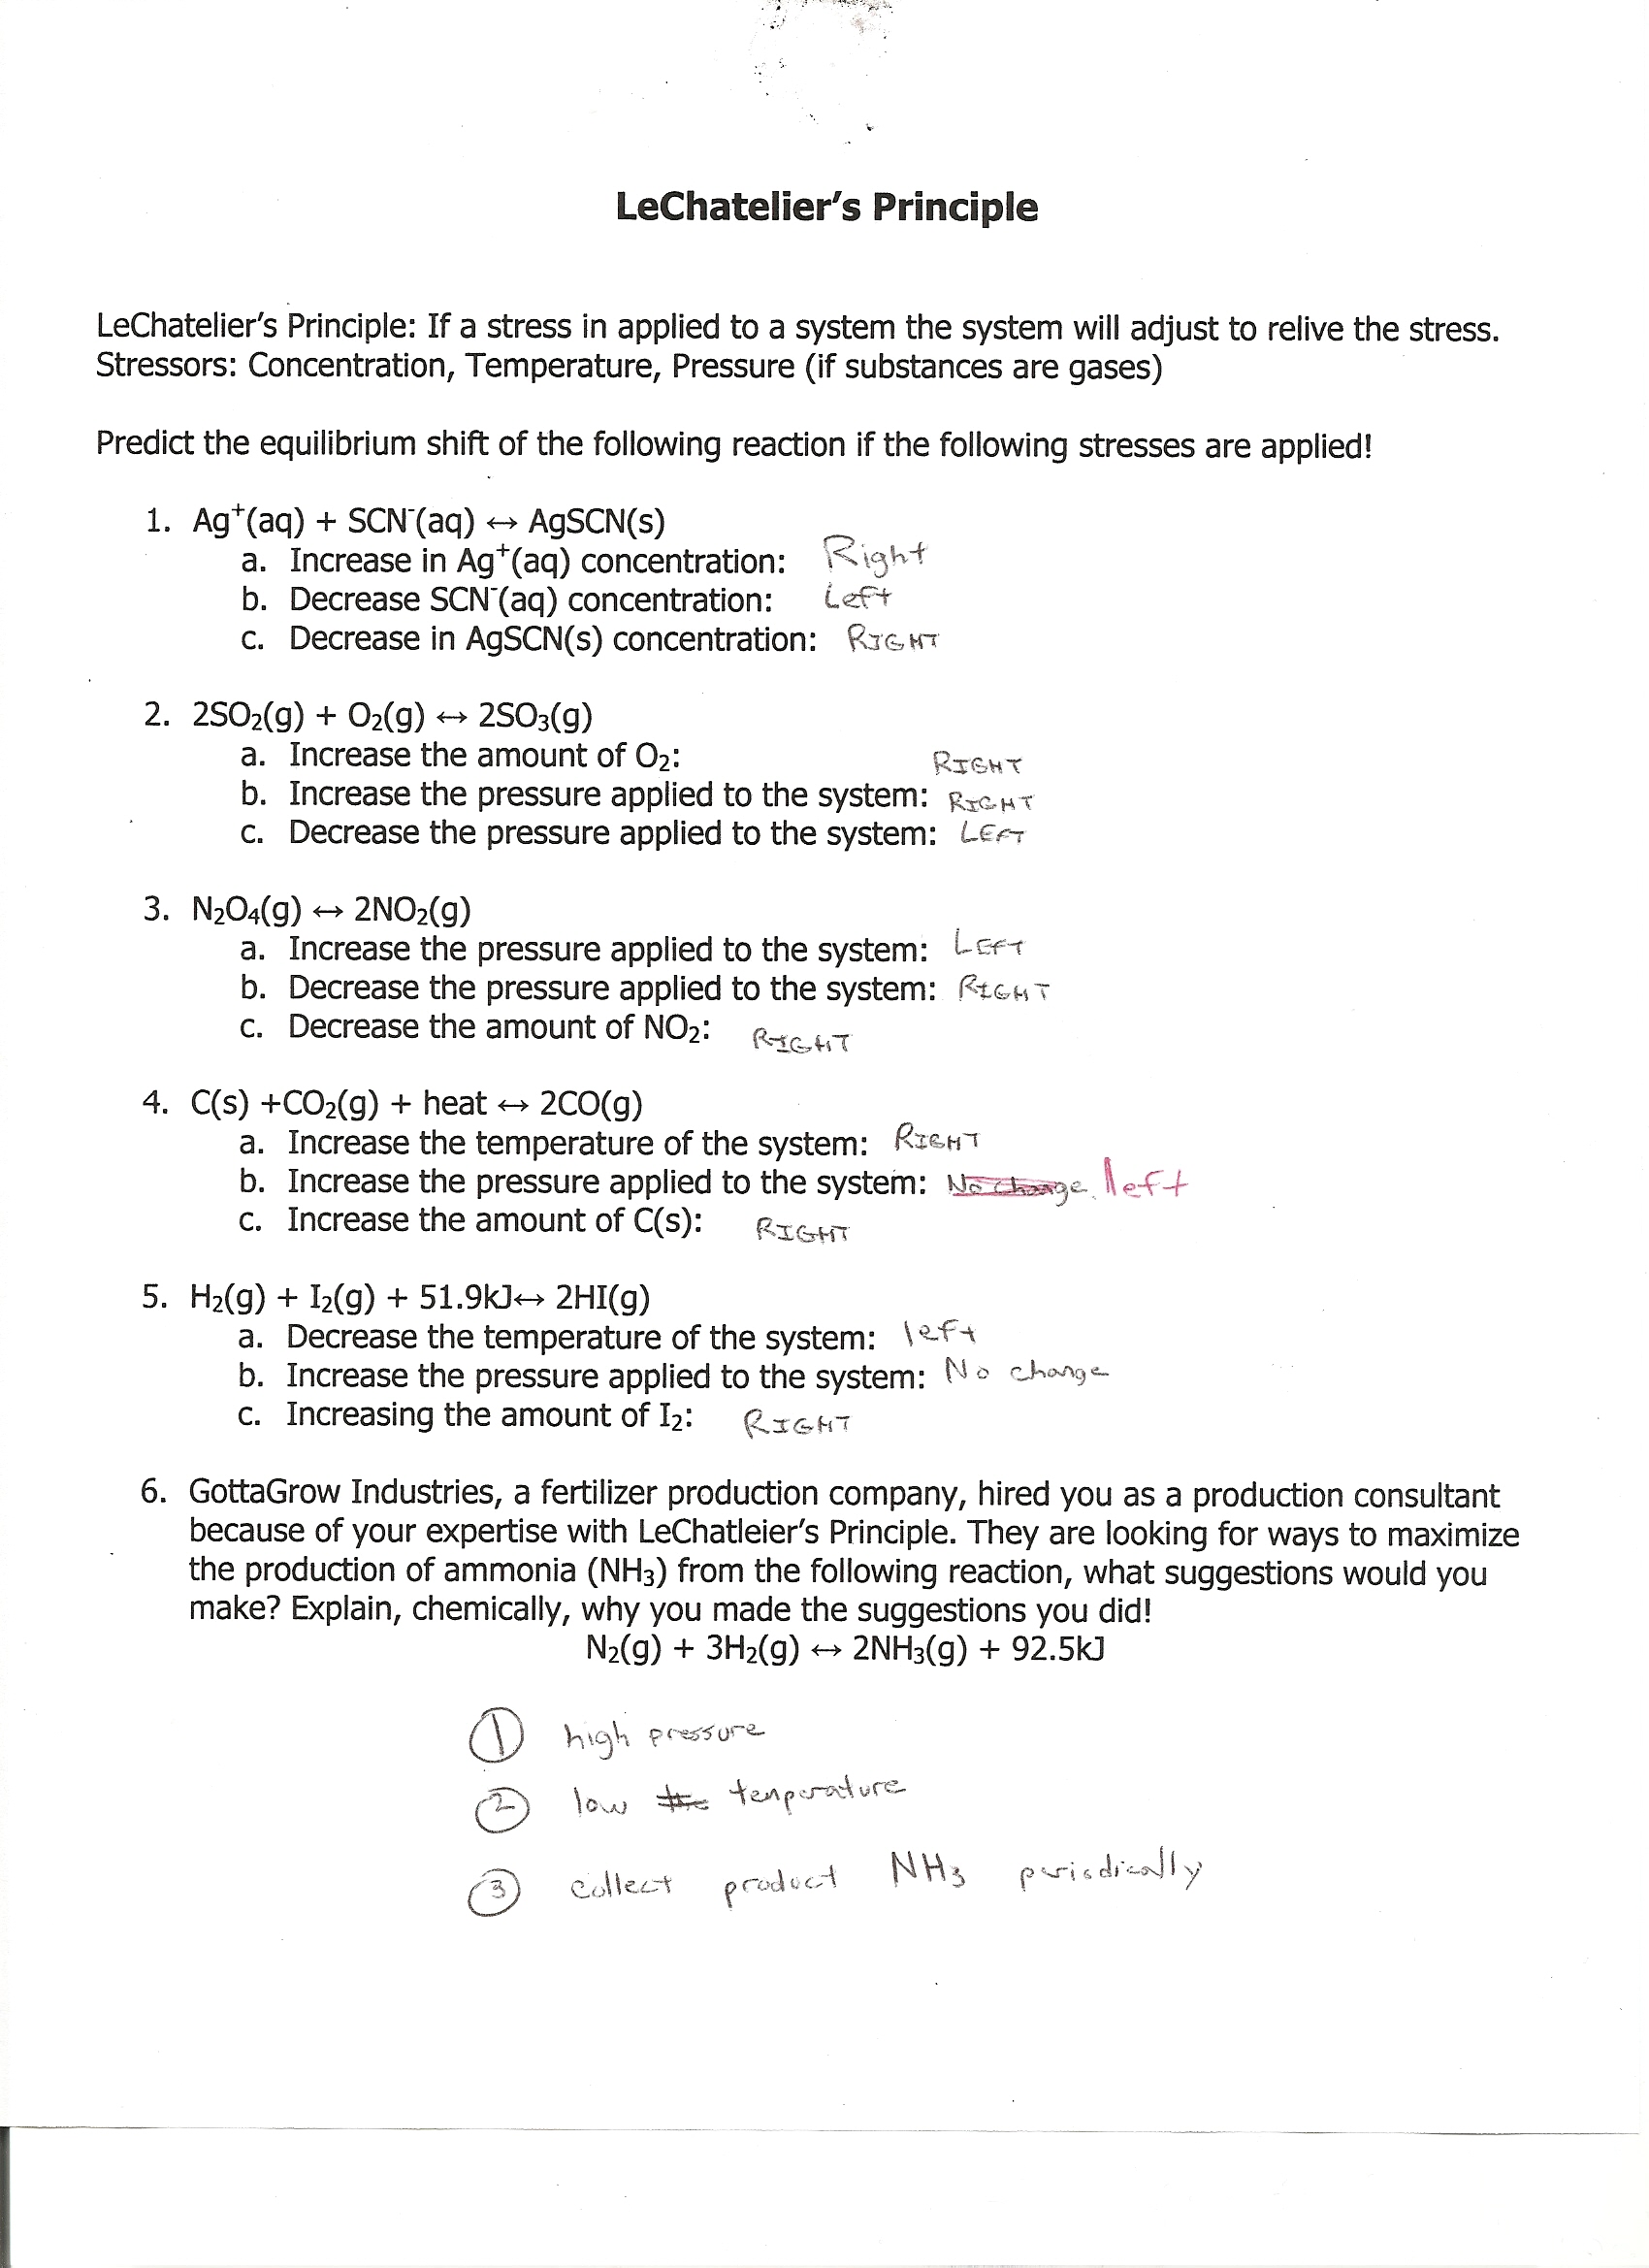 LeChatelier's Principle
LeChatelier's Principle: If a stress in applied to a system the system will adjust to relive the stress.
Stressors: Concentration, Temperature, Pressure (if substances are gases)
Predict the equilibrium shift of the following reaction if the following stresses are applied!
1. Ag⁺(aq) + SCN⁻(aq) ↔ AgSCN(s)
a. Increase in Ag⁺(aq) concentration: Right
b. Decrease SCN⁻(aq) concentration: Left
c. Decrease in AgSCN(s) concentration: RIGHT
2. 2SO₂(g) + O₂(g) ↔ 2SO₃(g)
a. Increase the amount of O₂: RIGHT
b. Increase the pressure applied to the system: RIGHT
c. Decrease the pressure applied to the system: LEFT
3. N₂O₄(g) ↔ 2NO₂(g)
a. Increase the pressure applied to the system: LEFT
b. Decrease the pressure applied to the system: RIGHT
c. Decrease the amount of NO₂: RIGHT
4. C(s) +CO₂(g) + heat ↔ 2CO(g)
a. Increase the temperature of the system: RIGHT
b. Increase the pressure applied to the system: No change left
c. Increase the amount of C(s): RIGHT
5. H₂(g) + I₂(g) + 51.9kJ↔ 2HI(g)
a. Decrease the temperature of the system: left
b. Increase the pressure applied to the system: No change
c. Increasing the amount of I₂: RIGHT
6. GottaGrow Industries, a fertilizer production company, hired you as a production consultant
because of your expertise with LeChatleier's Principle. They are looking for ways to maximize
the production of ammonia (NH₃) from the following reaction, what suggestions would you
make? Explain, chemically, why you made the suggestions you did!
N₂(g) + 3H₂(g) ↔ 2NH₃(g) + 92.5kJ
1 high pressure
2 low temperature
3 collect product NH₃ periodically